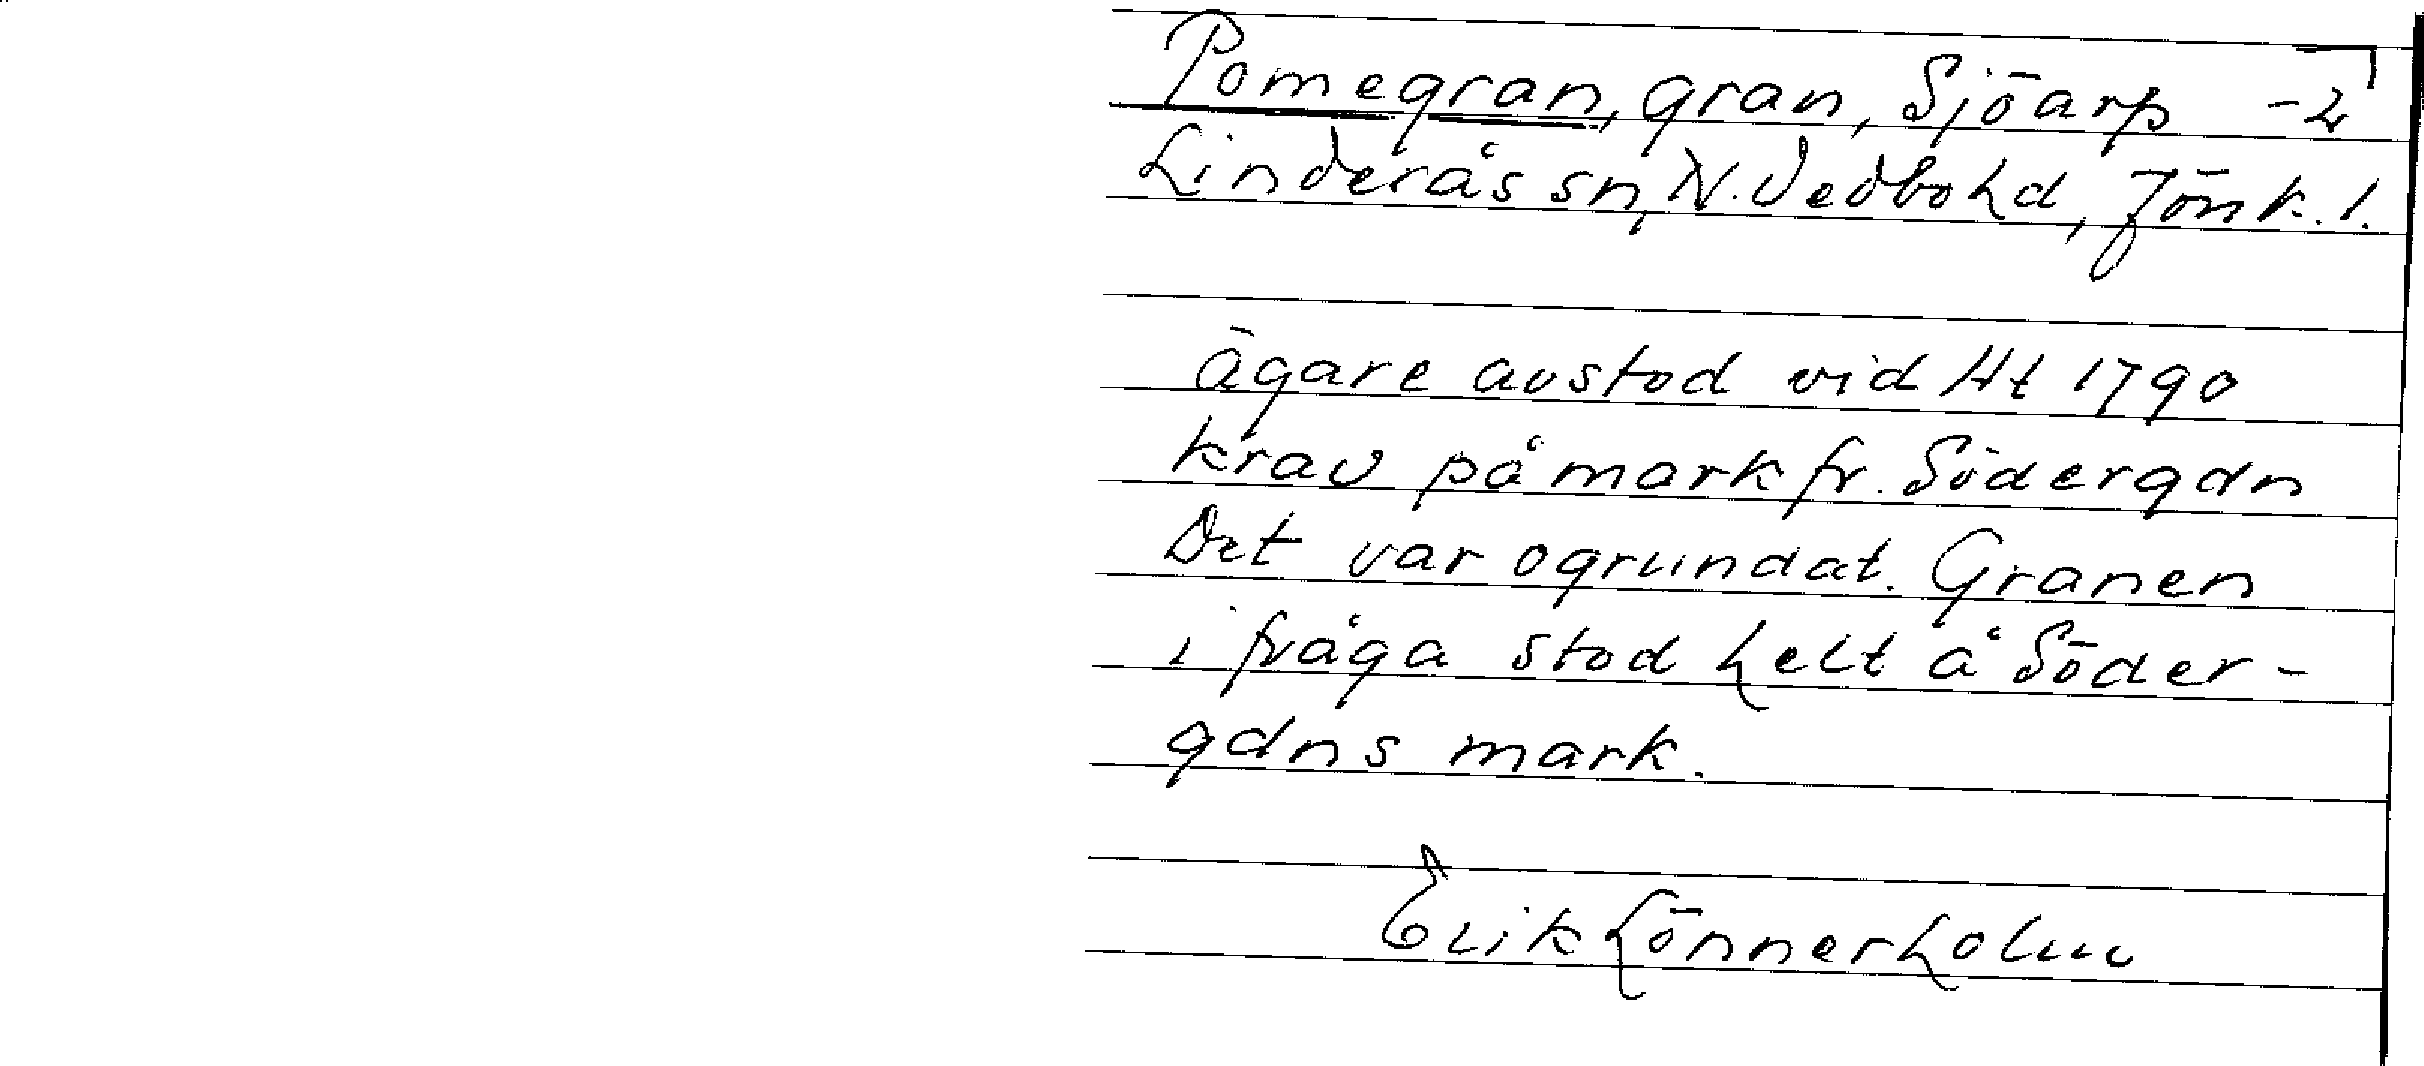 Pomegran, gran, Sjöarp -2
Linderås sn, N. Vedbo hd, Jönk. l.
ägare avstod vid Ht 1790
krav på mark fr. Södergdn
Det var ogrundat. Granen
i fråga stod helt å Söder-
gdns mark.
Erik Lönnerholm